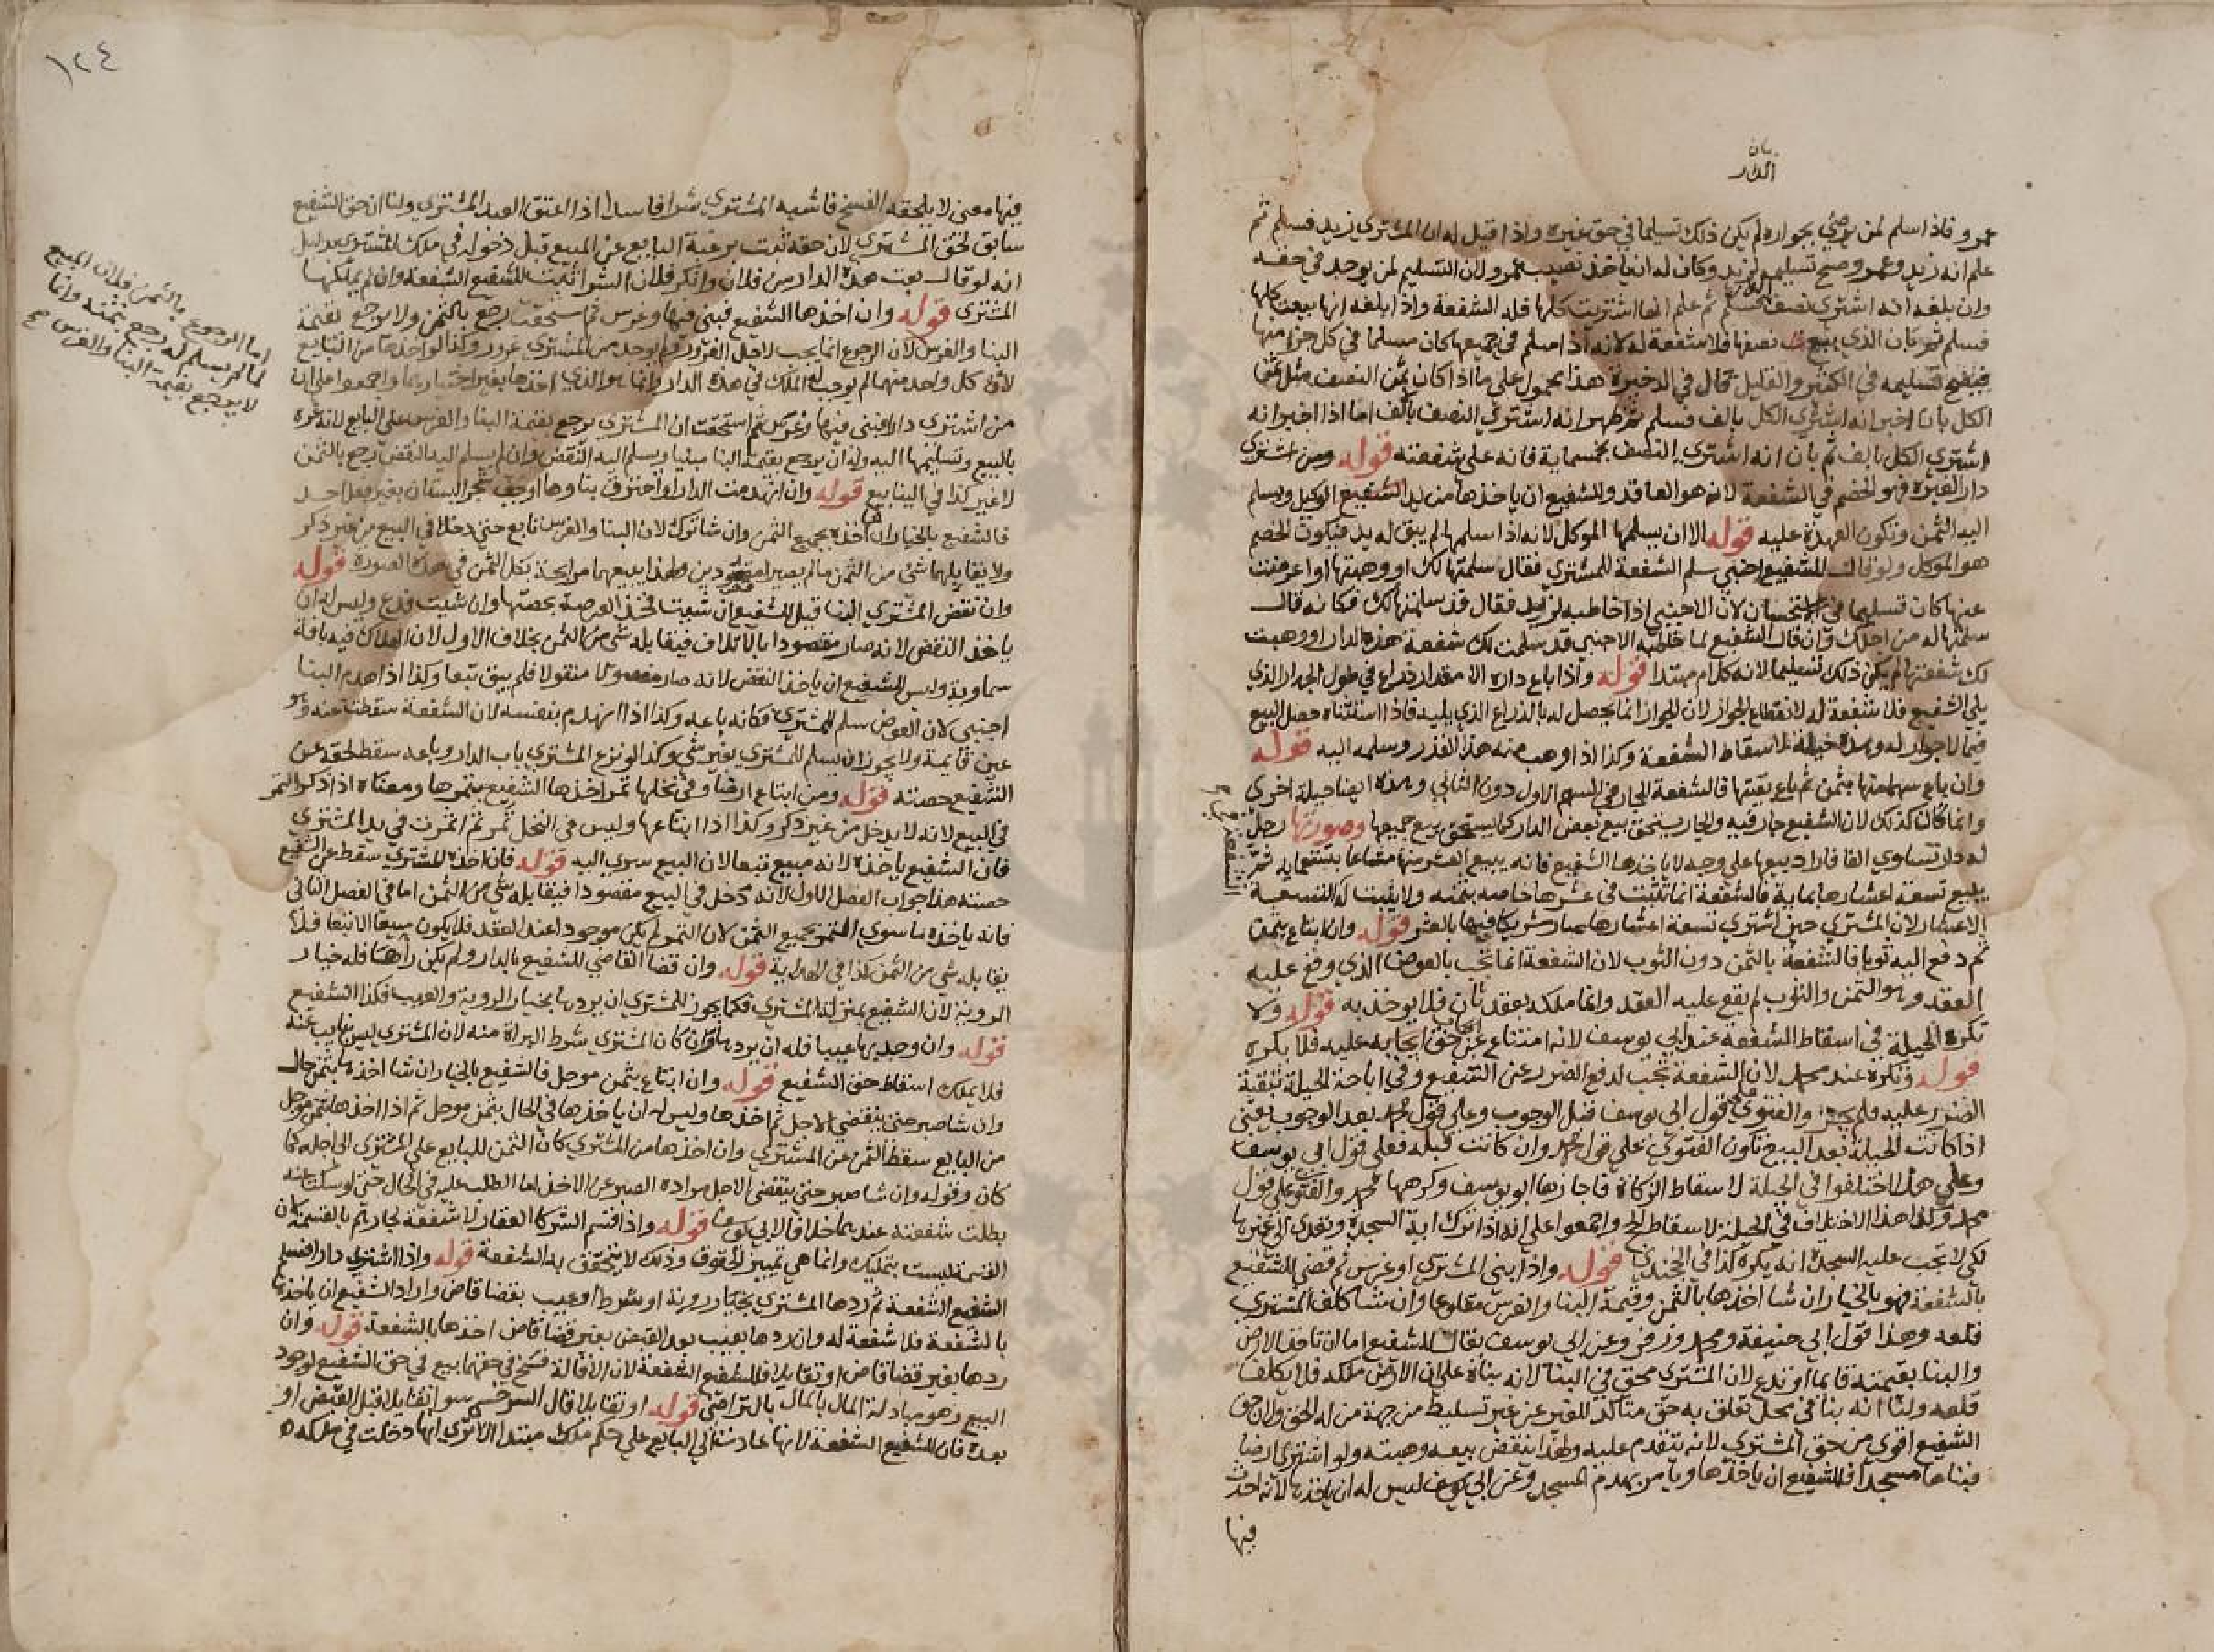 بان
الدار
عمرو فاذا سلم لمن يرضي بجواره لم يكن ذلك تسليما في حق غيره واذا قيل له ان المشتري زيد فسلم ثم
علم انه زيد وعمرو صح تسليمه لزيد وكان له ان ياخذ نصيب عمرو ولان التسليم لمن يوجد في حقه
وان بلغه انه اشتري نصف الدار فسلم ثم علم انها اشتريت كلها فله الشفعة واذا بلغه انها بيعت كلها
فسلم ثم بان الذي بيع نصفها فلا شفعة له لانه اذا سلم في جميعها كان مسلما في كل جزء منها
فيصح تسليمه في الكثير والقليل قال في الذخيرة هذا محمول علي ما اذا كان ثمن النصف مثل ثمن
الكل بان اخبر انه اشتري الكل بالف فسلم ثم ظهر انه اشتري النصف بالف اما اذا اخبر انه
اشتري الكل بالف ثم بان انه اشتري النصف بخمسماية فانه علي شفعته قوله ومن اشتري
دار الغيره فهو الخصم في الشفعة لانه هو العاقد وللشفيع ان ياخذها من يد الشفيع الوكيل ويسلم
اليه الثمن وتكون العهدة عليه قوله الا ان يسلمها الموكل لانه اذا سلمها لم يبق له يد فيكون الخصم
هو الموكل ولو قال للشفيع اجنبي سلم الشفعة للمشتري فقال سلمتها لك او وهبتها او اعرضت
عنها كان تسليما في الاستحسان لان الاجنبي اذا خاطبه لزيد فقال قد سلمتها لك فكانه قال
سلمتها له من اجلك وان قال الشفيع لما خاطبه الاجنبي قد سلمت لك شفعة هذه الدار او وهبت
لك شفعتها لم يكن ذلك تسليما لانه كلام مبتدا قوله واذا باع داره الا مقدار ذراع في طول الجدار الذي
يلي الشفيع فلا شفعة له لانقطاع الجوار لان الجوار انما يحصل له بالذراع الذي يليه فاذا استثناه حصل البيع
فيما لا جوار له وهذه حيلة لاسقاط الشفعة وكذا اذا وهب منه هذا القدر وسلمه اليه قوله
وان باع سهما منها بثمن ثم باع بقيتها فالشفعة للجار في السهم الاول دون الثاني وهذه ايضا حيلة اخري
وانما كان كذلك لان الشفيع جار فيه والجار يستحق بيع بعض الدار كما يستحق بيع جميعها وصورتها رجل
له دار تساوي الفا فاراد بيعها علي وجه لا ياخذها الشفيع فانه يبيع العشر منها مشاعا بتسعماية ثم
يبيع تسعة اعشارها بماية فالشفعة انما تثبت في عشرها خاصة بثمنه ولا يثبت له التسعة
الاعشار لان المشتري حين اشتري تسعة اعشارها صار شريكا فيها بالعشر قوله وان ابتاع بثمن
ثم دفع اليه ثوبا فالشفعة بالثمن دون الثوب لان الشفعة انما تجب بالعوض الذي وقع عليه
العقد وهو الثمن والثوب لم يقع عليه العقد وانما ملكه بعقد ثان فلا يوخذ به قوله ولا
تكره الحيلة في اسقاط الشفعة عند ابي يوسف لانه امتناع عن ايجاب حق عليه فلا يكره
قوله وتكره عند محمد لان الشفعة تجب لدفع الضرر عن الشفيع وفي اباحة الحيلة تبقية
الضرر عليه فلم يجز والفتوي علي قول ابي يوسف قبل الوجوب وعلي قول محمد بعد الوجوب يعني
اذا كانت الحيلة بعد البيع تكون الفتوي علي قول محمد وان كانت قبله فعلي قول ابي يوسف
وعلي هذا اختلفوا في الحيلة لاسقاط الزكاة فاجازها ابو يوسف وكرهها محمد والفتوي علي قول
محمد وكذا هذا الاختلاف في الحيلة لاسقاط الحج واجمعوا علي انه اذا ترك اية السجدة وتعدي الي غيرها
لكي لا تجب عليه السجدة انه يكره كذا في الخجندي قوله واذا بني المشتري او غرس ثم قضي للشفيع
بالشفعة فهو بالخيار ان شا اخذها بالثمن وقيمة البنا والغرس مقلوعا وان شا كلف المشتري
قلعه وهذا قول ابي حنيفة ومحمد وزفر وعن ابي يوسف يقال للشفيع اما ان تاخذ الارض
والبنا بقيمته قايما او تدع لان المشتري محق في البنا لانه بناه علي ان الارض ملكه فلا يكلف
قلعه ولنا انه بنا في محل تعلق به حق متاكد للغير عن غير تسليط من جهة من له الحق ولان حق
الشفيع اقوي من حق المشتري لانه يتقدم عليه ولهذا ينقض بيعه وهبته ولو اشتري ارضا
فبناها مسجدا فللشفيع ان ياخذها ويامر بهدم المسجد وعن ابي يوسف ليس له ان ياخذها لانه احدث
فيها
الشفعة
١٢٤
فيها معني لا يلحقه الفسخ فاشبه المشتري شرا فاسدا اذا اعتق العبد المشتري ولنا ان حق الشفيع
سابق لحق المشتري لان حقه ثبت برغبة البايع عن المبيع قبل دخوله في ملك المشتري بدليل
انه لو قال بعت هذه الدار من فلان وانكر فلان الشرا ثبت للشفيع الشفعة وان لم يملكها
المشتري قوله وان اخذها الشفيع فبني فيها وغرس ثم استحقت رجع بالثمن ولا يرجع بقيمة
البنا والغرس لان الرجوع انما يجب لاجل الغرور ولم يوجد من المشتري غرور وكذا لو اخذها من البايع
لان كل واحد منهما لم يوجب له الملك في هذه الدار وانما هو الذي اخذها بغير اختيارهما واجمعوا علي ان
من اشتري دارا فبني فيها وغرس ثم استحقت ان المشتري يرجع بقيمة البنا والغرس علي البايع لانه غره
بالبيع وتسليمها اليه وله ان يرجع بقيمة البنا مبنيا ويسلم اليه النقض وان لم يسلم اليه النقض رجع بالثمن
لا غير كذا في الينابيع قوله وان انهدمت الدار او احترق بناوها او جف شجر البستان بغير فعل احد
فالشفيع بالخيار ان شا اخذه بجميع الثمن وان شا ترك لان البنا والغرس تابع حتي دخلا في البيع من غير ذكر
ولا يقابلهما شي من الثمن ما لم يصيرا مقصودين ولهذا يبيعهما مرابحة بكل الثمن في هذه الصورة قوله
وان نقض المشتري البنا قيل للشفيع ان شيت فخذ العرصة بحصتها وان شيت فدع وليس له ان
ياخذ النقض لانه صار مقصودا بالاتلاف فيقابله شي من الثمن بخلاف الاول لان الهلاك فيه بافة
سماوية وليس للشفيع ان ياخذ النقض لانه صار مفصولا منقولا فلم يبق تبعا وكذا اذا هدم البنا
اجنبي لان العوض سلم للمشتري فكانه باعه وكذا اذا انهدم بنفسه لان الشفعة سقطت عنه وهو
عين قايمة ولا يجوز ان يسلم للمشتري بغير شي وكذا لو نزع المشتري باب الدار وباعه سقط لحقه عن
الشفيع حصته قوله ومن ابتاع ارضا وفي نخلها ثمر اخذها الشفيع بثمرها ومعناه اذا ذكر الثمر
في البيع لانه لا يدخل من غير ذكر وكذا اذا ابتاعها وليس في النخل ثمر ثم اثمرت في يد المشتري
فان الشفيع ياخذه لانه مبيع تبعا لان البيع سري اليه قوله فان اخذه المشتري سقط عن الشفيع
حصته هذا جواب الفصل الاول لانه دخل في البيع مقصودا فيقابله شي من الثمن اما في الفصل الثاني
فانه ياخذه ما سوي الثمر بجميع الثمن لان الثمر لم يكن موجودا عند العقد فلا يكون مبيعا الا تبعا فلا
يقابله شي من الثمن كذا في الهداية قوله وان قضا القاضي للشفيع بالدار ولم يكن راها فله خيار
الروية لان الشفيع بمنزلة المشتري فكما يجوز للمشتري ان يردها بخيار الروية والعيب فكذا الشفيع
قوله وان وجد بها عيبا فله ان يردها وان كان المشتري شرط البراة منه لان المشتري ليس بنايب عنه
فلا يملك اسقاط حق الشفيع قوله وان ابتاع بثمن موجل فالشفيع بالخيار ان شا اخذها بثمن حال
وان شا صبر حتي ينقضي الاجل ثم اخذها وليس له ان ياخذها في الحال بثمن موجل ثم اذا اخذها بثمن موجل
من البايع سقط الثمن عن المشتري وان اخذها من المشتري كان الثمن للبايع علي المشتري الي اجله كما
كان وقوله وان شا صبر حتي ينقضي الاجل مراده الصبر عن الاخذ اما الطلب عليه في الحال حتي لو سكت عنه
بطلت شفعته عندهما خلافا لابي يوسف قوله واذا قسم الشركا العقار لا شفعة لجارهم بالقسمة لان
القسمة ليست بتمليك وانما هي تمييز الحقوق وذلك لا يتحقق به الشفعة قوله واذا اشتري دارا فسلم
الشفيع الشفعة ثم ردها المشتري بخيار روية او شرط او عيب بقضا قاض واراد الشفيع ان ياخذها
بالشفعة فلا شفعة له وان ردها بعيب بعد القبض بغير قضا قاض اخذها بالشفعة قوله وان
ردها بغير قضا قاض او تقايلا فللشفيع الشفعة لان الاقالة فسخ في حقهما بيع في حق الشفيع لوجود
البيع وهو مبادلة المال بالمال بالتراضي قوله او تقايلا قال السرخسي سوا تقايلا قبل القبض او
بعده فان للشفيع الشفعة لانها عادت الي البايع علي حكم ملك مبتدا الا تري انها دخلت في ملكه
اما الرجوع بالثمن فلان المبيع
لما لم يسلم له رجع بثمنه وانما
لا يرجع بقيمة البنا والغرس صح